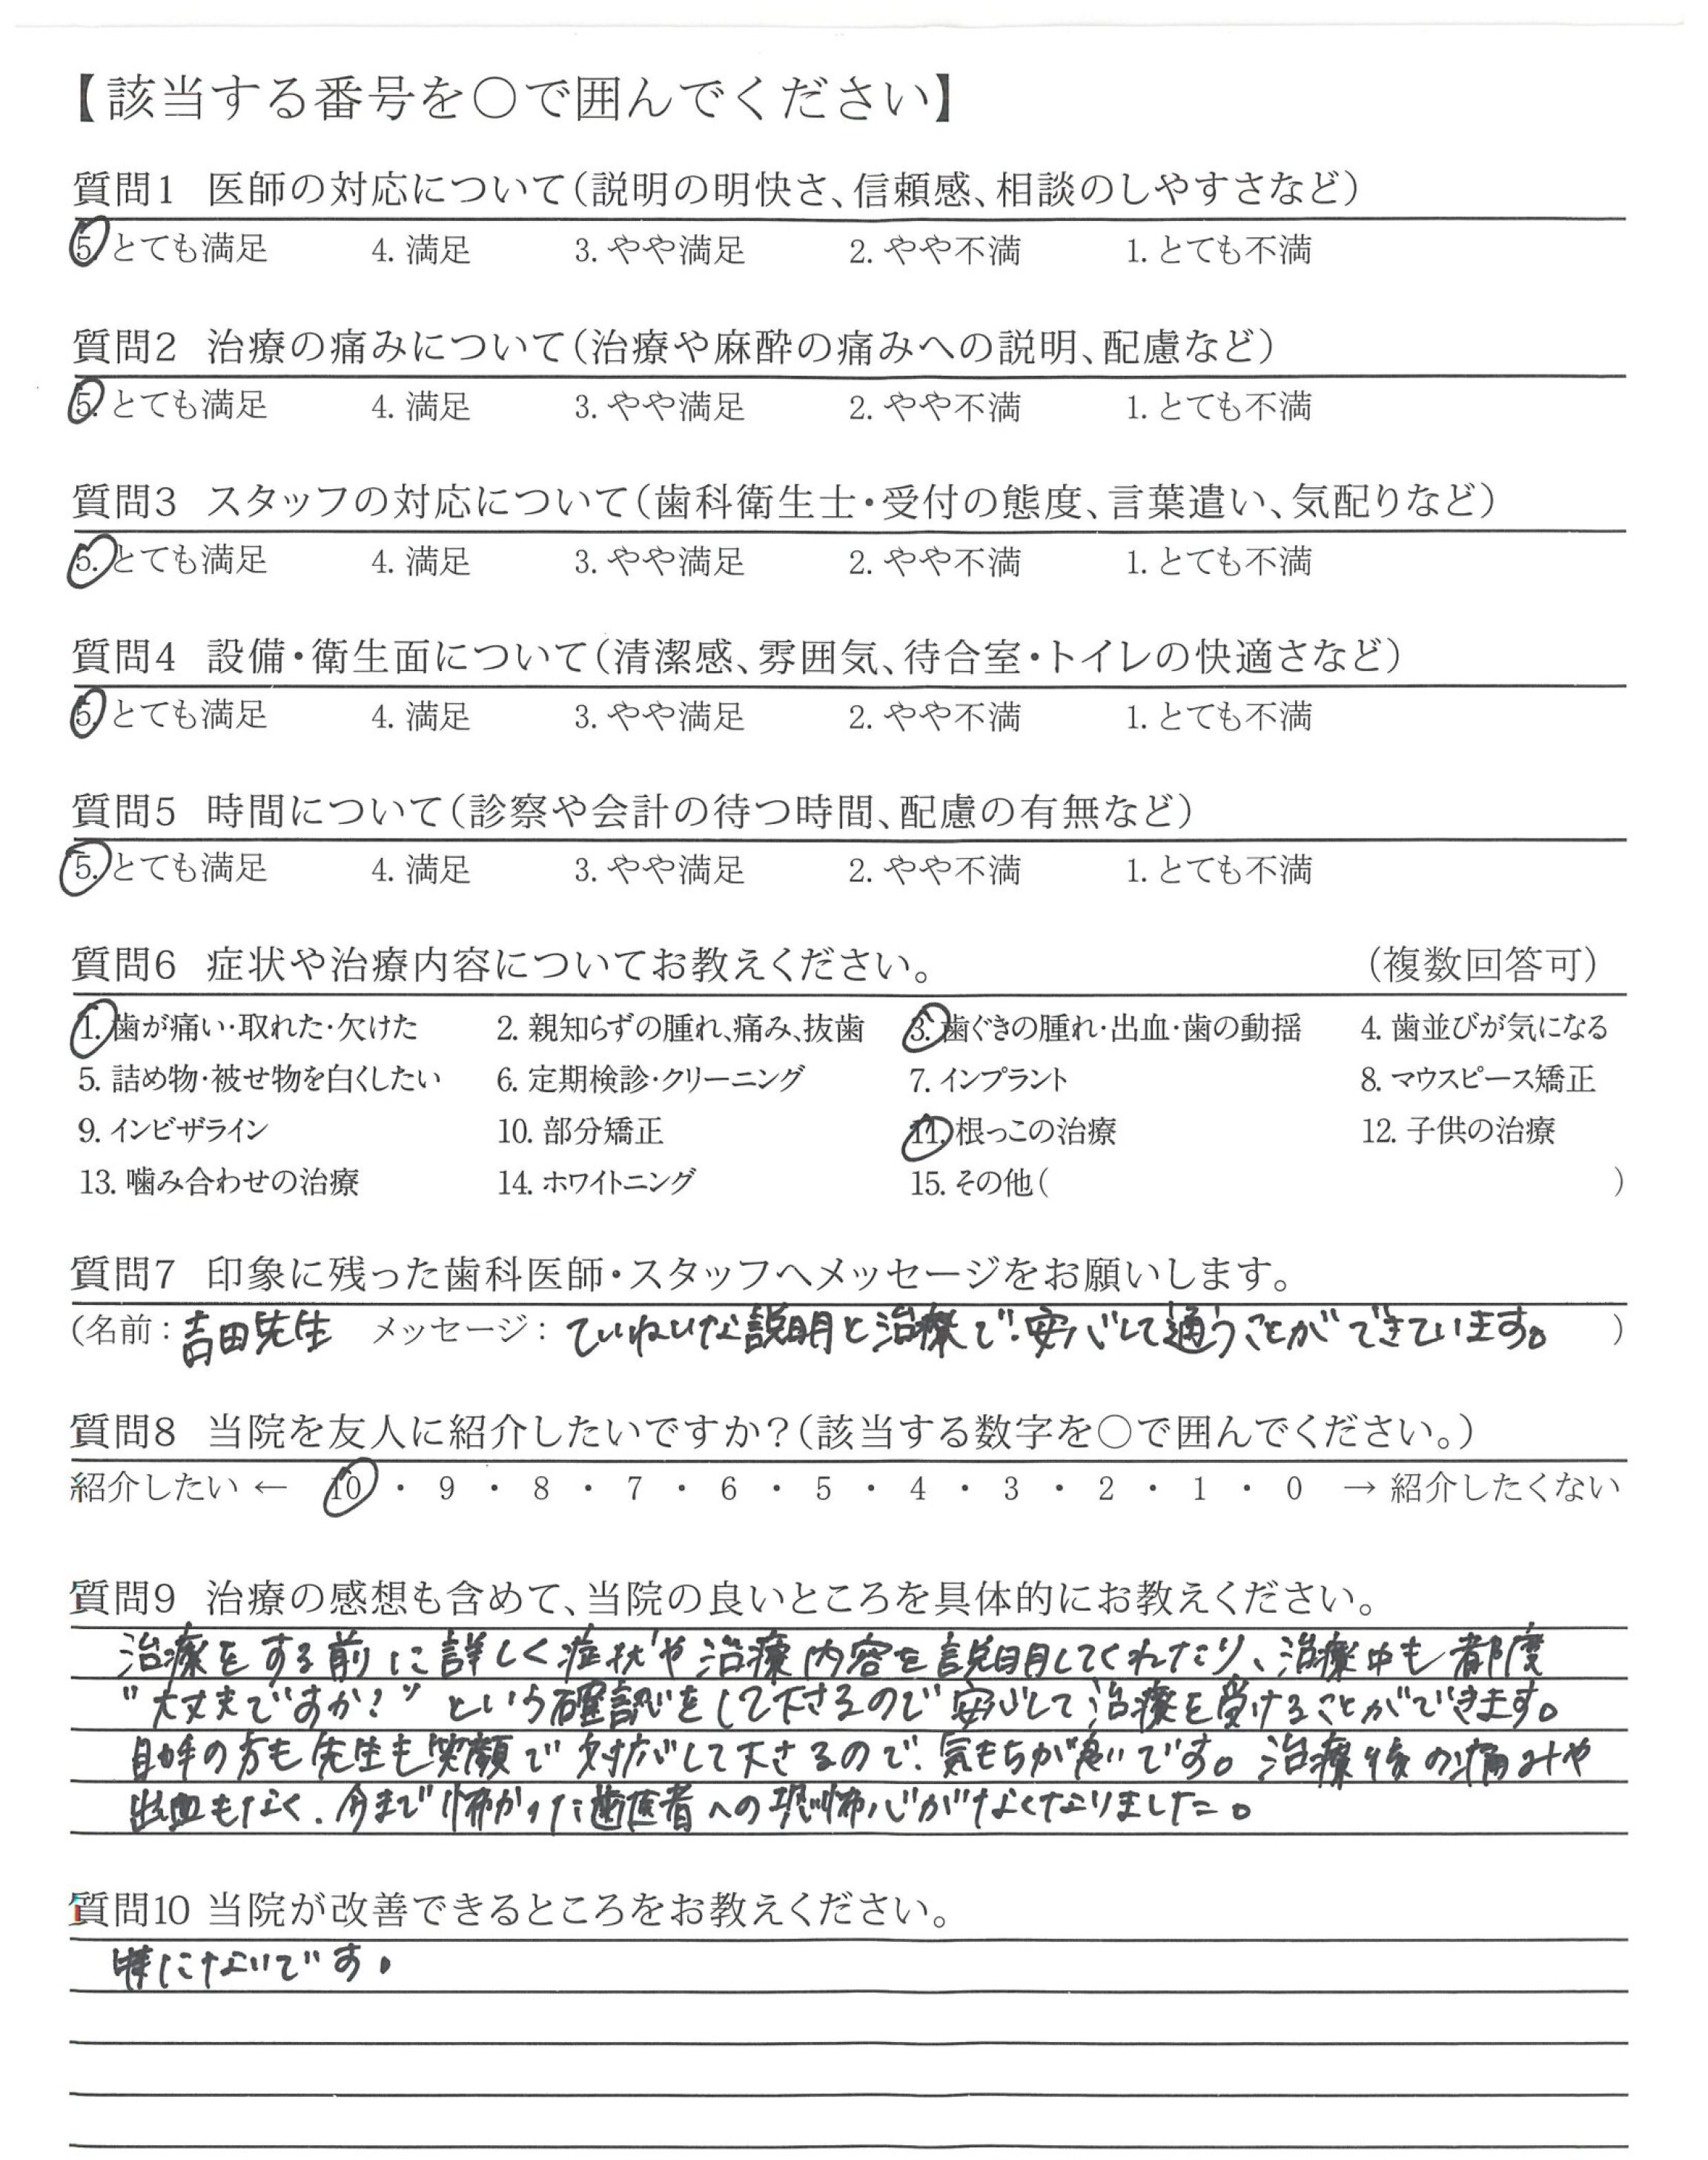 【該当する番号を○で囲んでください】
質問1 医師の対応について(説明の明快さ、信頼感、相談のしやすさなど)
5. とても満足 4. 満足 3. やや満足 2. やや不満 1. とても不満
質問2 治療の痛みについて(治療や麻酔の痛みへの説明、配慮など)
5. とても満足 4. 満足 3. やや満足 2. やや不満 1. とても不満
質問3 スタッフの対応について(歯科衛生士・受付の態度、言葉遣い、気配りなど)
5. とても満足 4. 満足 3. やや満足 2. やや不満 1. とても不満
質問4 設備・衛生面について(清潔感、雰囲気、待合室・トイレの快適さなど)
5. とても満足 4. 満足 3. やや満足 2. やや不満 1. とても不満
質問5 時間について(診察や会計の待つ時間、配慮の有無など)
5. とても満足 4. 満足 3. やや満足 2. やや不満 1. とても不満
質問6 症状や治療内容についてお教えください。 (複数回答可)
1. 歯が痛い・取れた・欠けた 2. 親知らずの腫れ、痛み、抜歯 3. 歯ぐきの腫れ・出血・歯の動揺 4. 歯並びが気になる
5. 詰め物・被せ物を白くしたい 6. 定期検診・クリーニング 7. インプラント 8. マウスピース矯正
9. インビザライン 10. 部分矯正 11. 根っこの治療 12. 子供の治療
13. 噛み合わせの治療 14. ホワイトニング 15. その他( )
質問7 印象に残った歯科医師・スタッフへメッセージをお願いします。
(名前: 吉田先生 メッセージ: ていねいな説明と治療で、安心して通うことができています。 )
質問8 当院を友人に紹介したいですか?(該当する数字を○で囲んでください。)
紹介したい ← 10 ・ 9 ・ 8 ・ 7 ・ 6 ・ 5 ・ 4 ・ 3 ・ 2 ・ 1 ・ 0 → 紹介したくない
質問9 治療の感想も含めて、当院の良いところを具体的にお教えください。
治療をする前に詳しく症状や治療内容を説明してくれたり、治療中も都度
"大丈夫ですか?" という確認をして下さるので安心して治療を受けることができます。
助手の方も先生も笑顔で対応して下さるので、気もちが良いです。治療後の痛みや
出血もなく、今まで怖かった歯医者への恐怖心がなくなりました。
質問10 当院が改善できるところをお教えください。
特にないです。